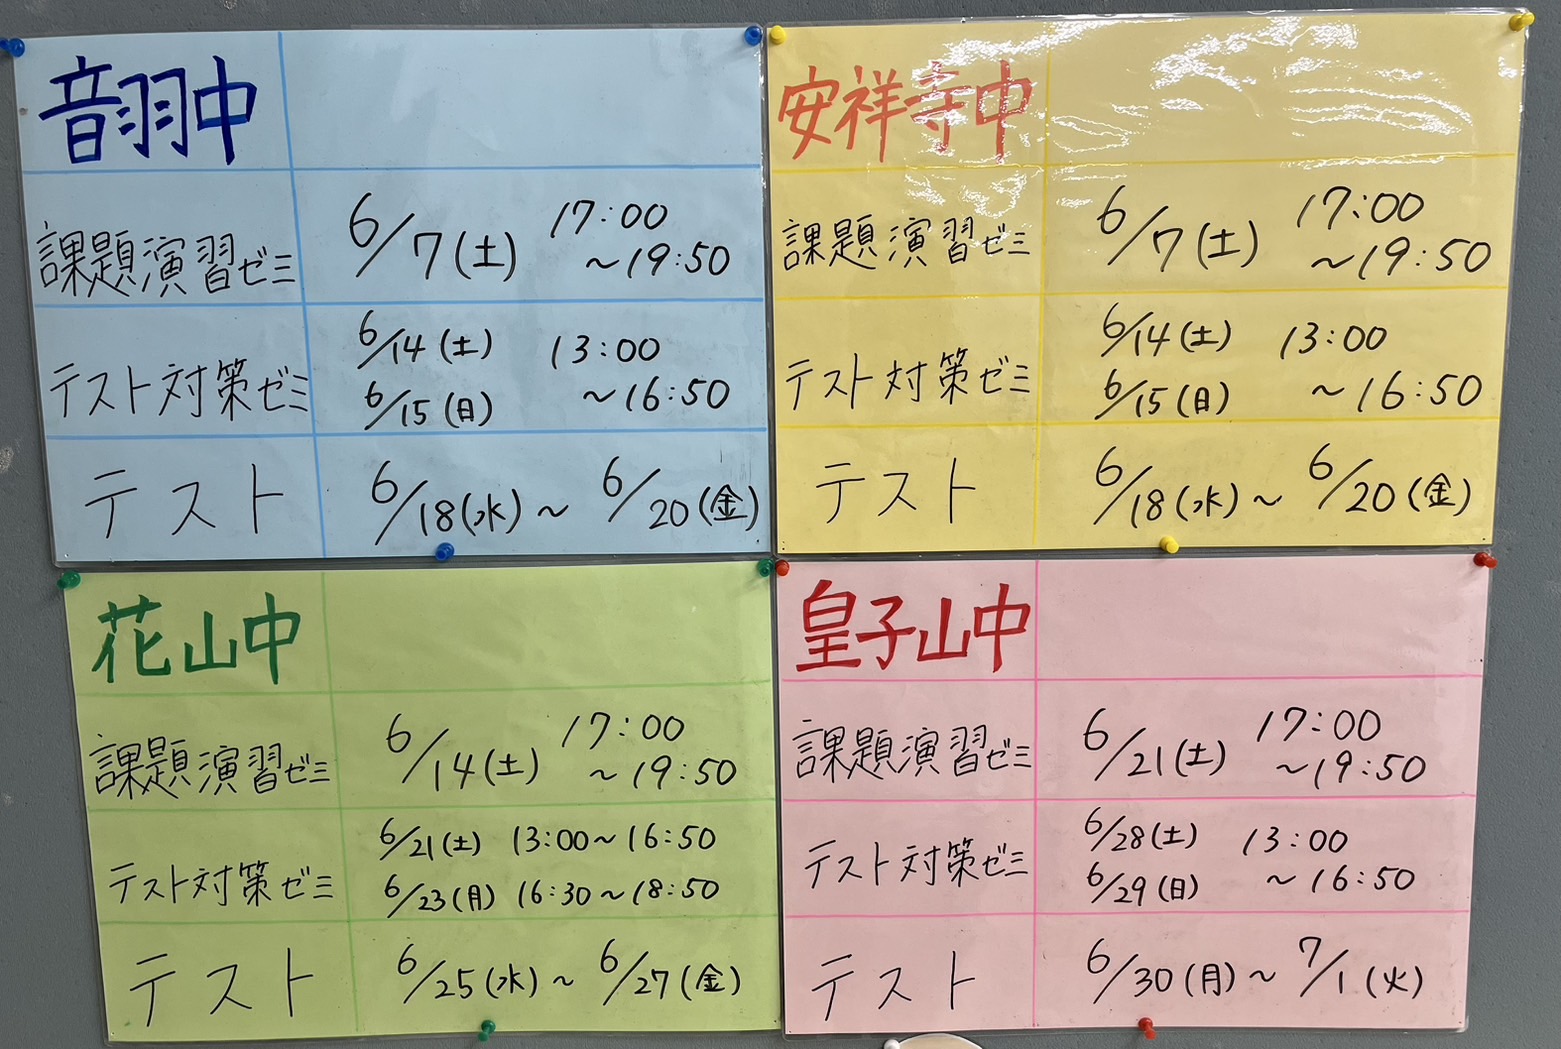 音羽中
課題演習ゼミ 6/7(土) 17:00
~19:50
テスト対策ゼミ 6/14(土) 13:00
6/15(日) ~16:50
テスト 6/18(水)~ 6/20(金)
安祥寺中
課題演習ゼミ 6/7(土) 17:00
~19:50
テスト対策ゼミ 6/14(土) 13:00
6/15(日) ~16:50
テスト 6/18(水)~ 6/20(金)
花山中
課題演習ゼミ 6/14(土) 17:00
~19:50
テスト対策ゼミ 6/21(土) 13:00~16:50
6/23(月) 16:30~18:50
テスト 6/25(水)~ 6/27(金)
皇子山中
課題演習ゼミ 6/21(土) 17:00
~19:50
テスト対策ゼミ 6/28(土) 13:00
6/29(日) ~16:50
テスト 6/30(月)~ 7/1(火)